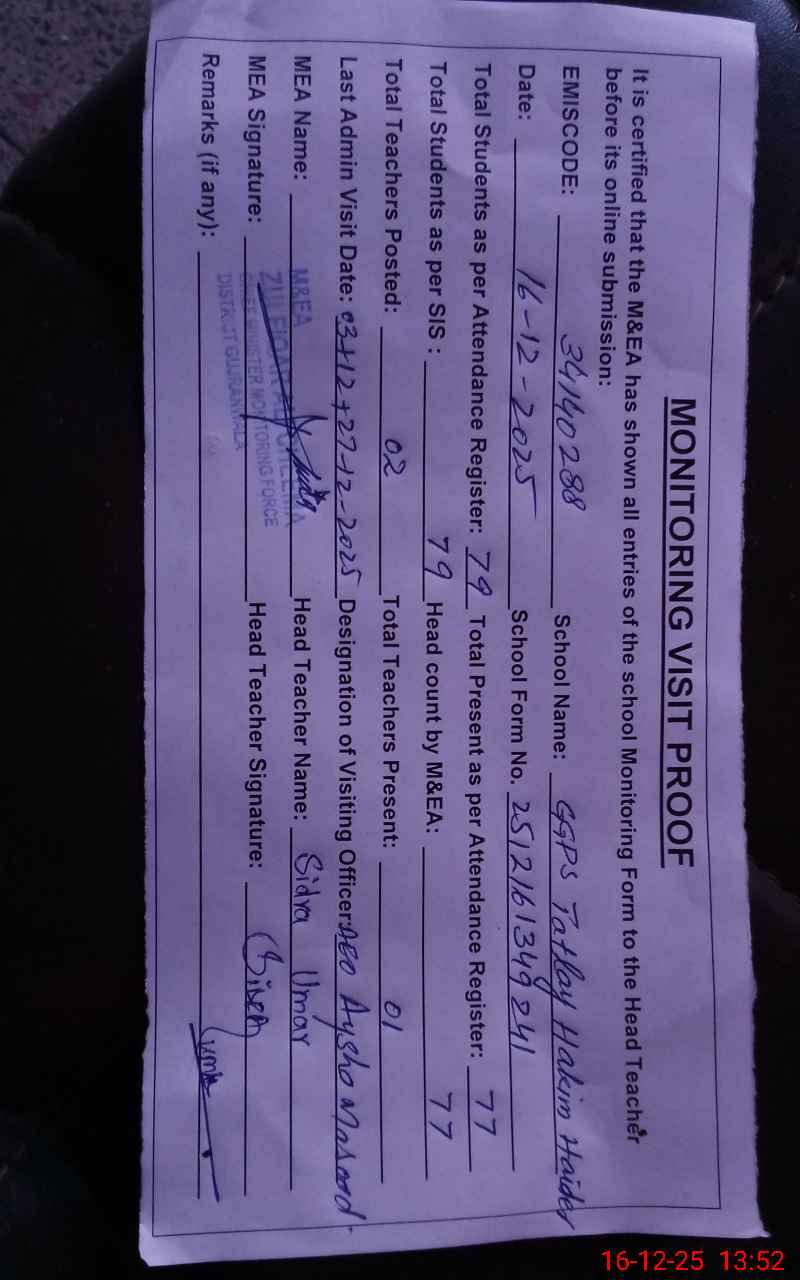 MONITORING VISIT PROOF
It is certified that the M&EA has shown all entries of the school Monitoring Form to the Head Teacher
before its online submission:
EMISCODE: 34140288 School Name: GGPS Tatlay Hakim Haider
Date: 16-12-2025 School Form No. 2512161349241
Total Students as per Attendance Register: 79 Total Present as per Attendance Register: 77
Total Students as per SIS : 79 Head count by M&EA: 77
Total Teachers Posted: 02 Total Teachers Present: 01
Last Admin Visit Date: 03+12+27-12-2025 Designation of Visiting Officer: AEO Aysho Masood
MEA Name: M&EA Head Teacher Name: Sidra Umar
ZULFIQAR ALI CHEEMA
MEA Signature: Head Teacher Signature:
CHIEF MINISTER MONITORING FORCE
DISTRICT GUJRANWALA
Remarks (if any):
16-12-25 13:52